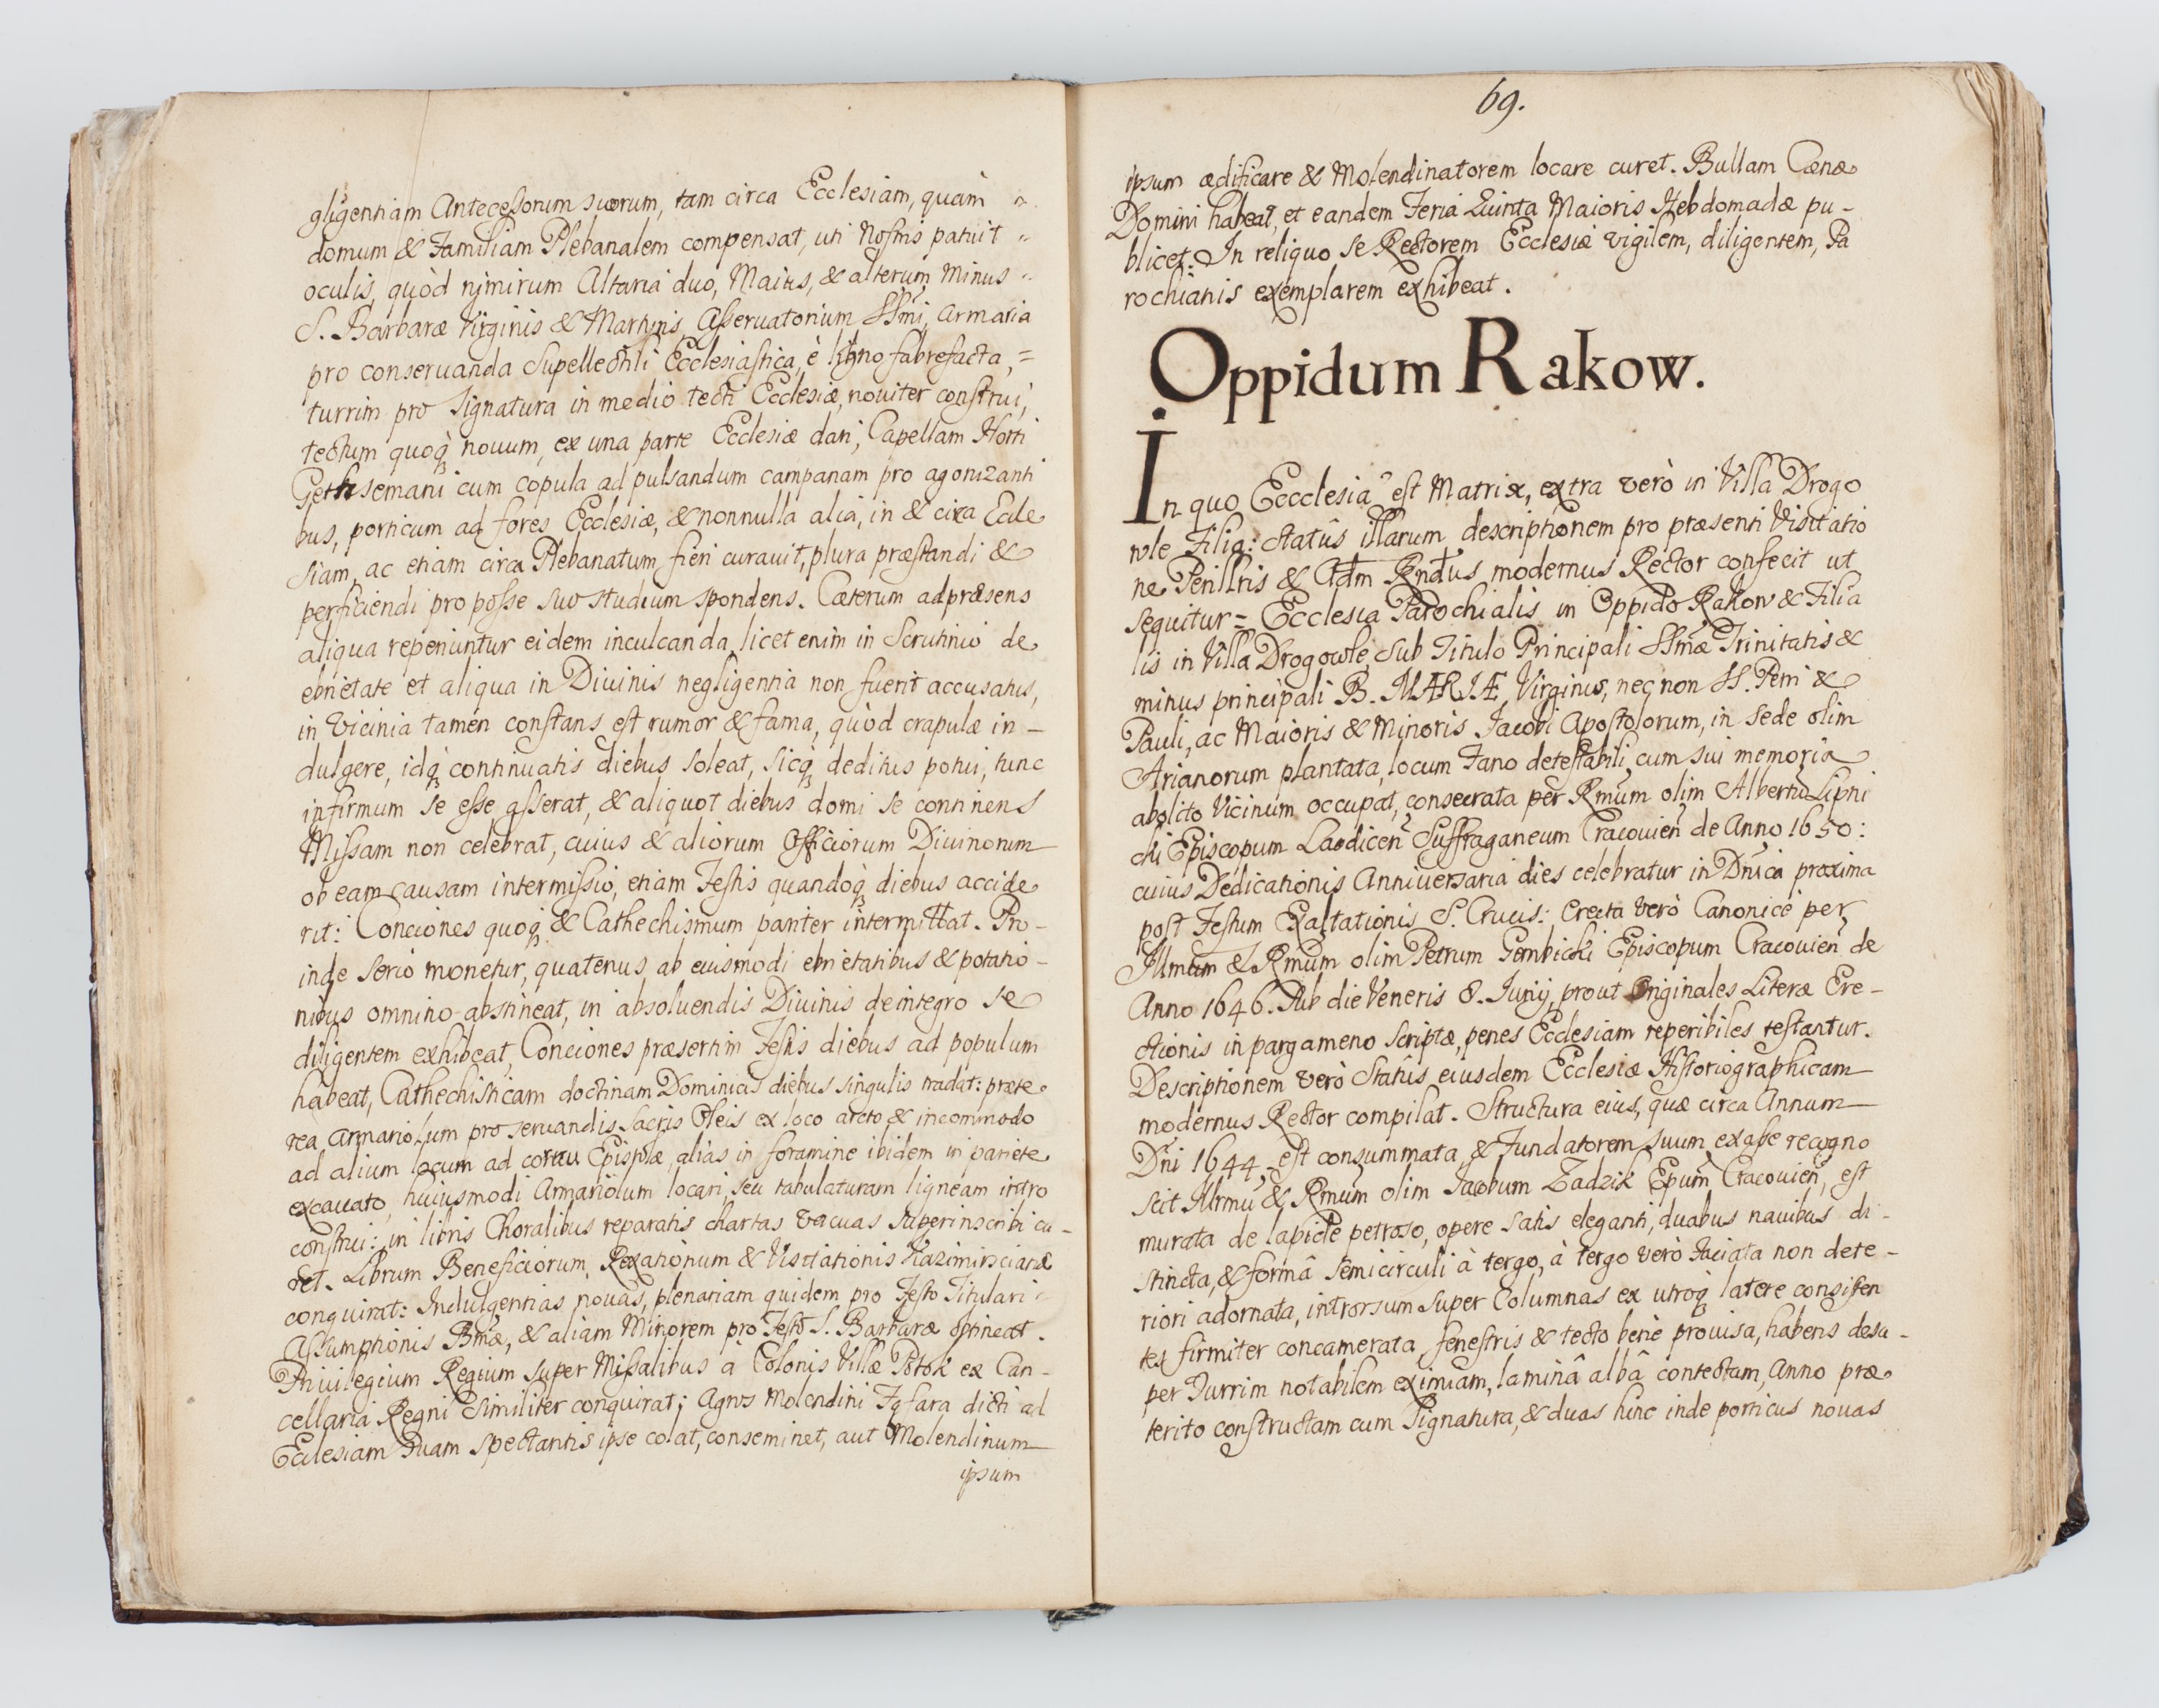 gligentiam Antecessorum suorum, tam circa Ecclesiam, quàm
domum & Familiam Plebanalem compensat, uti Nostris patuit
oculis, quòd nimirum Altaria duo, Maius, & alterum Minus
S. Barbaræ Virginis & Martyris, Asseruatorium SSmi, armaria
pro conseruanda Supellectili Ecclesiastica, è ligno fabrefacta, =
turrim pro Signatura in medio tecti Ecclesiæ, nouiter construi,
tectum quoq; nouum, ex una parte Ecclesiæ dari, Capellam Horti
Gethsemani cum copula ad pulsandum campanam pro agonizanti
bus, porticum ad fores Ecclesiæ, & nonnulla alia, in & circa Eccle
siam, ac etiam circa Plebanatum fieri curauit, plura præstandi &
perficiendi pro posse suo studium spondens. Cæterum ad præsens
aliqua reperiuntur eidem inculcanda, licet enim in Scrutinio de
ebrietate et aliqua in Diuinis negligentia non fuerit accusatus,
in Vicinia tamen constans est rumor & fama, quòd crapulæ in-
dulgere, idq; continuatis diebus soleat, sicq; deditus potui, tunc
infirmum se esse asserat, & aliquot diebus domi se continens
Missam non celebrat, cuius & aliorum Officiorum Diuinorum
ob eam causam intermissio, etiam Festis quandoq; diebus accide
rit: Conciones quoq; & Cathechismum pariter intermittat. Pro-
inde serio monetur, quatenus ab eiusmodi ebrietatibus & potatio-
nibus omnino abstineat, in absoluendis Diuinis de integro se
diligentem exhibeat, Conciones præsertim Festis diebus ad populum
habeat, Cathechisticam doctrinam Dominicis diebus singulis tradat: præte
rea armariolum pro seruandis Sacris Oleis ex loco arcto & incommodo
ad alium locum ad cornu Epistolæ, aliàs in foramine ibidem in pariete
excauato, huiusmodi Armariolum locari, seu tabulaturam ligneam intro
construi: in libris Choralibus reparatis chartas vacuas superinscribi cu-
ret. Librum Beneficiorum, Rexationum & Visitationis Kazimirscianæ
conquirat: Indulgentias nouas, plenariam quidem pro Festo Titulari
Assumptionis Bmæ, & aliam Minorem pro Festo S. Barbaræ obtineat.
Priuilegium Regium super Missalibus à Colonis Villæ Potok ex Can-
cellaria Regni similiter conquirat; agros Molendini Fąfara dicti ad
Ecclesiam suam spectantis ipse colat, conseminet, aut Molendinum
ipsum
69.
ipsum ædificare & Molendinatorem locare curet. Bullam Cænæ
Domini habeat, et eandem Feria Quinta Maioris Hebdomadæ pu-
blicet: In reliquo se Rectorem Ecclesiæ vigilem, diligentem, Pa
rochianis exemplarem exhibeat.
Oppidum Rakow.
In quo Eccclesia est Matrix, extra verò in Villa Drogo
wle Filia: Statûs illarum descriptionem pro præsenti Visitatio
ne Perillris & Adm Rndus modernus Rector confecit ut
sequitur = Ecclesia Parochialis in Oppido Rakow & Filia
lis in Villa Drogowle, sub Titulo Principali SSmæ Trinitatis &
minus principali B. MARIÆ Virginis, nec non SS. Petri &
Pauli, ac Maioris & Minoris Jacobi Apostolorum, in sede olim
Arianorum plantata, locum Fano detestabili, cum sui memoria
abolito Vicinum occupat, consecrata per Rmum olim Albertū Lipni
cki Episcopum Laodicen Suffraganeum Cracouien de Anno 1650:
cuius Dedicationis Anniuersaria dies celebratur in Dnica proxima
post Festum Exaltationis S. Crucis: Erecta verò Canonicè per
Illmum & Rmum olim Petrum Gembicki Episcopum Cracouien de
Anno 1646. Sub die Veneris 8. Junij, prout Originales Literæ Ere-
ctionis in pargameno scriptæ, penes Ecclesiam reperibiles testantur.
Descriptionem verò Statûs eiusdem Ecclesiæ Historiographicam
modernus Rector compilat. Structura eius, quæ circa Annum
Dni 1644, est consummata & Fundatorem suum ex asse recogno
scit Illrmū & Rmum olim Jacobum Zadzik Epum Cracouien, est
murata de lapide petroso, opere satis eleganti, duabus nauibus di-
stincta, & formâ semicirculi à tergo, à tergo verò faciata non dete-
riori adornata, introrsum super Columnas ex utroq; latere consisten
tes firmiter concamerata, fenestris & tecto benè prouisa, habens desu-
per Turrim notabilem eximiam, laminâ albâ contectam, Anno præ
terito constructam cum Signatura, & duas hinc inde porticus nouas